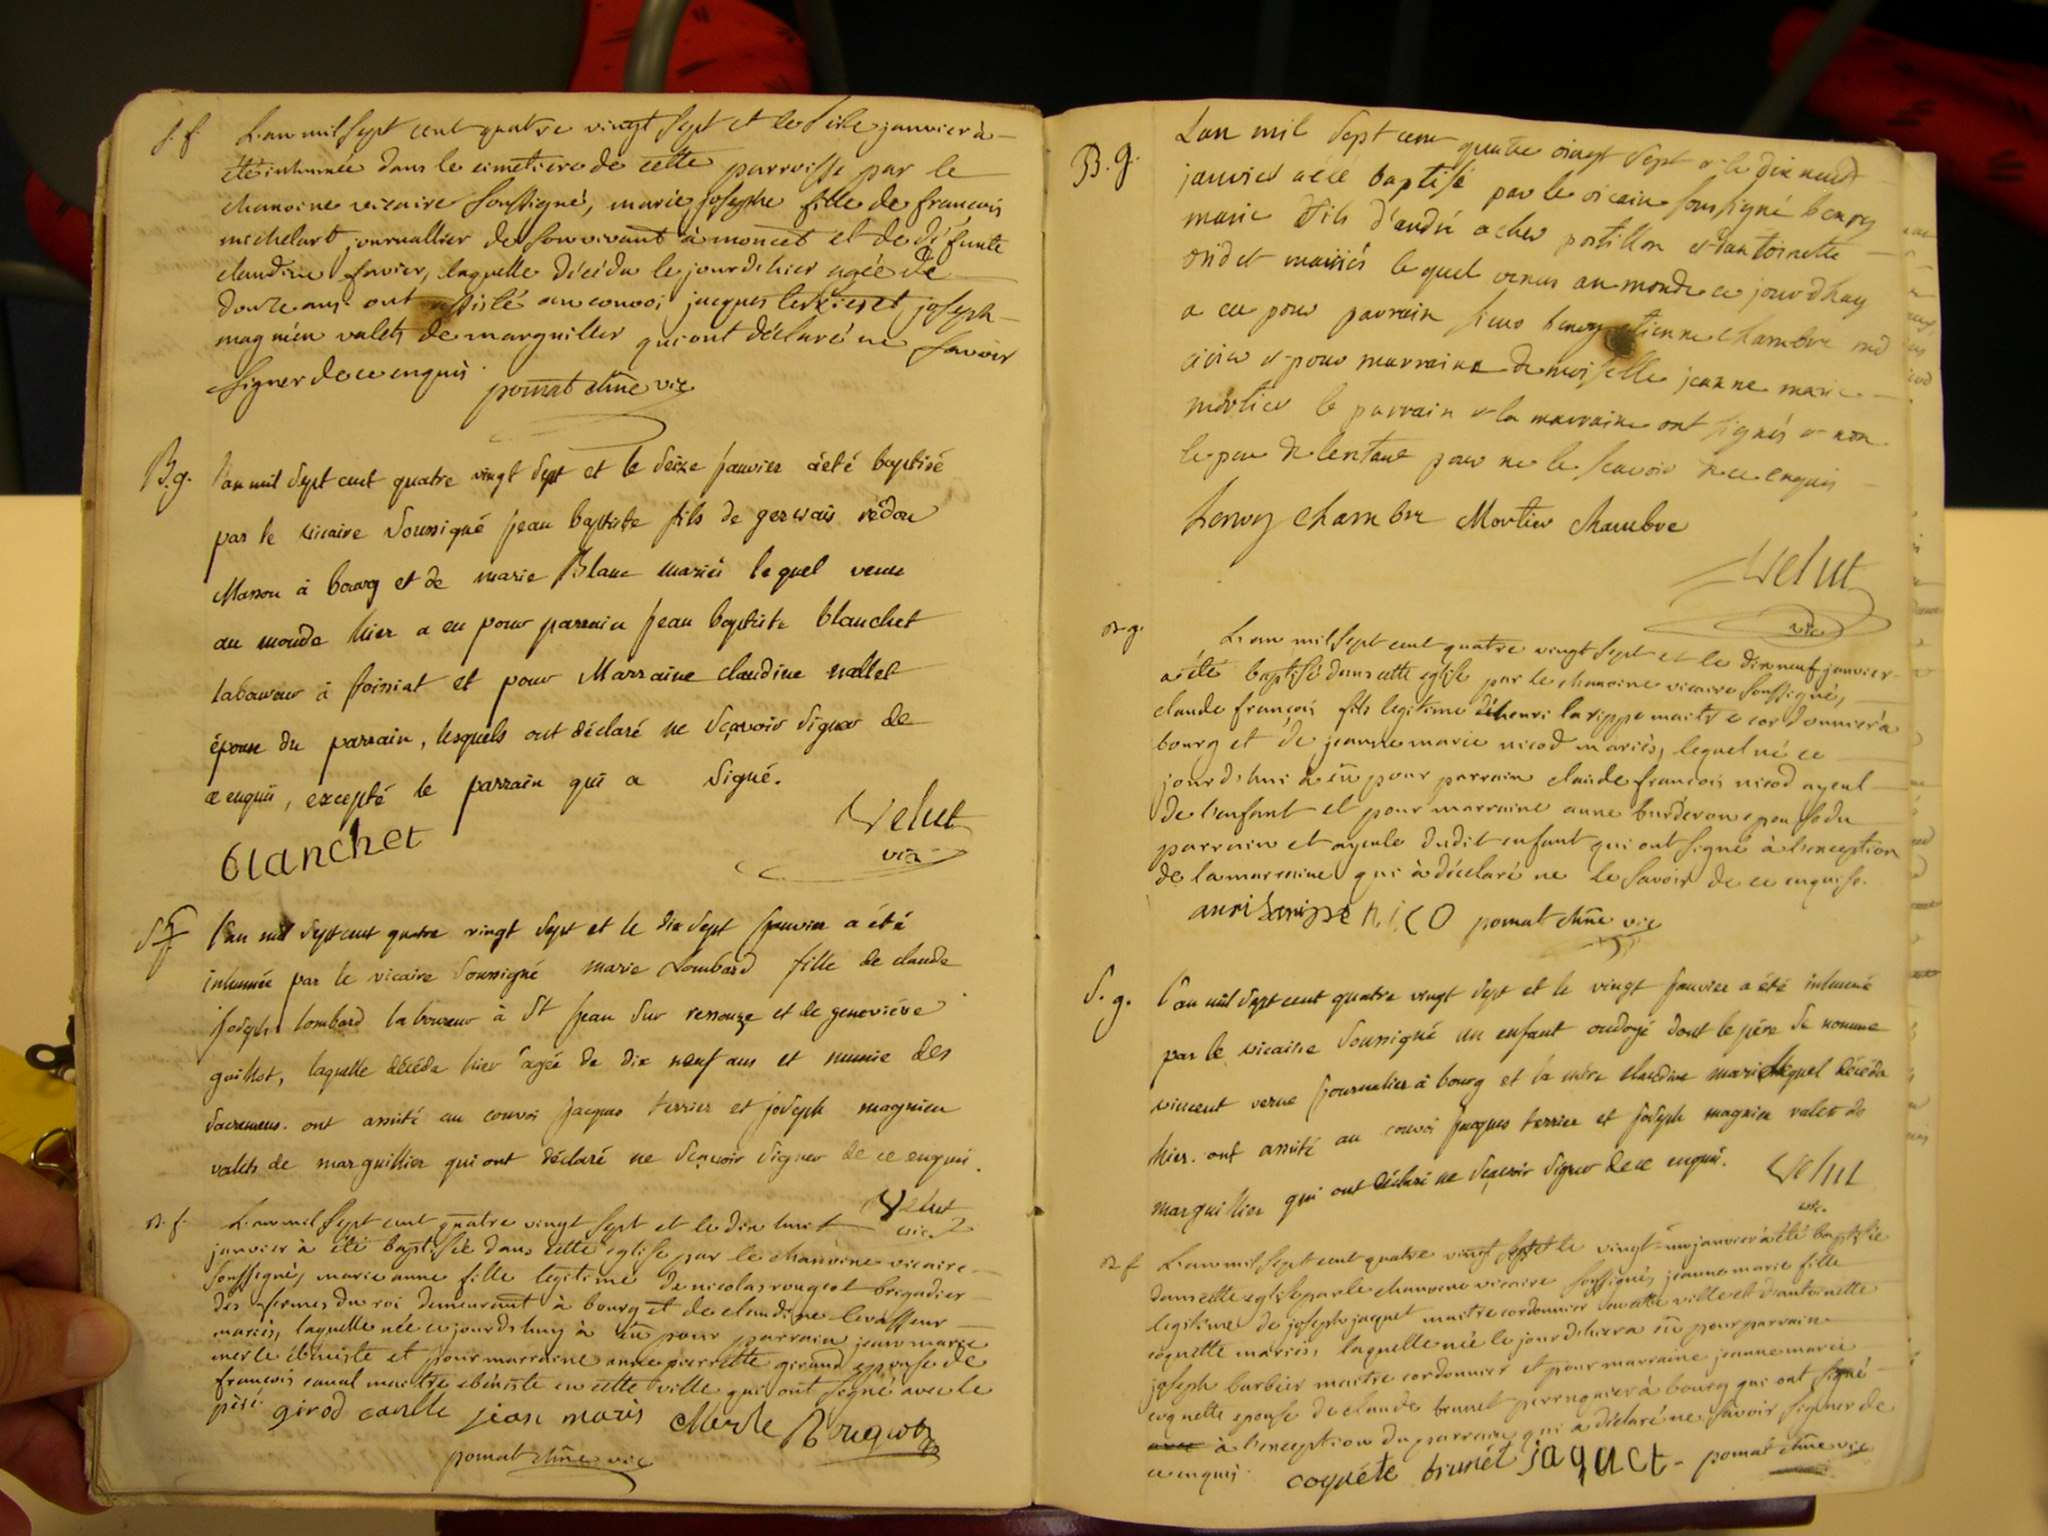 s. f. L'an mil sept cent quatre vingt sept et le seize janvier à
été inhumée dans le cimetiere de cette parroisse par le
chanoine vicaire soussigné, marie josephe fille de francois
michelard journallier de son vivant à moncet et de défunte
claudine favier, laquelle décéda le jour d'hier agée de
douze ans. ont assisté au convoi jacques terrier et joseph
magnien valets de marguiller qui ont déclaré ne savoir
signer de ce enquis.
pomat chne vic
B. g. L'an mil sept cent quatre vingt sept et le seize janvier a été baptisé
par le vicaire soussigné jean baptiste fils de gervais rédon
Masson à bourg et de marie Blanc mariés lequel venu
au monde hier a eu pour parrain jean baptiste blanchet
laboureur à foissiat et pour Marraine claudine nallet
épouse du parrain, lesquels ont déclaré ne sçavoir signer de
ce enquis, excepté le parrain qui a signé.
blanchet
Velut
vic
S f L'an mil sept cent quatre vingt sept et le dix sept janvier a été
inhumée par le vicaire soussigné marie Lombard fille de claude
joseph lombard laboureur à St jean sur ressouze et de geneviéve
guillot, laquelle décéda hier agée de dix neuf ans et munie des
sacremens. ont assisté au convoi jacques terrier et joseph magnien
valets de marguillier qui ont déclaré ne sçavoir signer de ce enquis.
Velut
vic
B. f. L'an mil sept cent quatre vingt sept et le dix huit
janvier à été baptisée dans cette eglise par le chanoine vicaire
soussigné, marie anne fille legitime de nicolas rougeot brigadier
des fermes du roi demeurant à bourg et de claudine levasseur
mariés, laquelle née ce jourd'huy à eu pour parrain jean marie
merle ébeniste et pour marraine anne pierrette giraud epouse de
francois canal maitre ebéniste en cette ville qui ont signé avec le
pére.
girod canále jean maris Merle Rougeot
pomat chne vic
B. g. L'an mil sept cent quatre vingt sept et le dix neuf
janvier a été baptisé par le vicaire soussigné henry
marie fils d'andré acher postillon et d'antoinette
ordet mariés lequel venus au monde ce jourd'huy
a eu pour parrain sieur henry etienne chambre
et pour marraine demoiselle jeanne marie
mortier le parrain et la marraine ont signés et non
le pere de lenfant pour ne le scavoir de ce enquis
henry chambre Mortier chambre
Velut
vic
B. g. L'an mil sept cent quatre vingt sept et le dix neuf janvier
a été baptisé dans cette eglise par le chanoine vicaire soussigné,
claude francois fils legitime de henri larippe maitre cordonnier à
bourg et de jeanne marie nicod mariés, lequel né ce
jourd'hui à eu pour parrain claude francois nicod ayeul
de l'enfant et pour marraine anne burderon epouse du
parrain et ayeule dudit enfant qui ont signé à l'exception
de la marraine qui à déclaré ne le savoir de ce enquise.
anri larippe NiCO pomat chne vic
S. g. L'an mil sept cent quatre vingt sept et le vingt janvier a été inhumé
par le vicaire soussigné un enfant ondoyé dont le père se nomme
vincent verne journalier à bourg et la mère claudine marie lequel décéda
hier. ont assisté au convoi jacques terrier et joseph magnien valets de
marguillier qui ont déclaré ne sçavoir signer de ce enquis.
Velut
vic.
B. f L'an mil sept cent quatre vingt sept et le vingt-un janvier à été baptisée
dans cette eglise par le chanoine vicaire soussigné, jeanne marie fille
legitime de joseph jacquet maitre cordonnier en cette ville et d'antoinette
coquette mariés, laquelle née le jour d'hier a eu pour parrain
joseph barbier maitre cordonnier et pour marraine jeanne marie
coquette epouse de claude brunet perruquier à bourg qui ont signé
à l'exception du parrain qui a déclaré ne savoir signer de
ce enquis. coquéte brunét jaquet - pomat chne vic